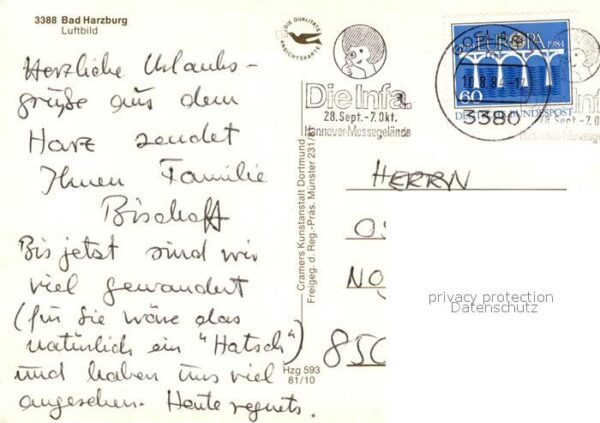 3388 Bad Harzburg
Luftbild
Herzliche Urlaubs-
grüße aus dem
Harz sendet
Ihnen Familie
Bischoff
Bis jetzt sind wir
viel gewandert
(für Sie wäre das
natürlich ein "Hatsch")
und haben uns viel
angesehen. Heute regnets.
DIE QUALITÄTS
ANSICHTSKARTE
Die Infa.
28. Sept. - 7. Okt.
Hannover-Messegelände
Cramers Kunstanstalt Dortmund
Freigeg. d. Reg.-Präs. Münster 231/81
Hzg 593
81/10
EUROPA 1984
60
DEUTSCHE BUNDESPOST
3380
28. Sept. - 7.O
HERRN
O
NO
850
privacy protection
Datenschutz